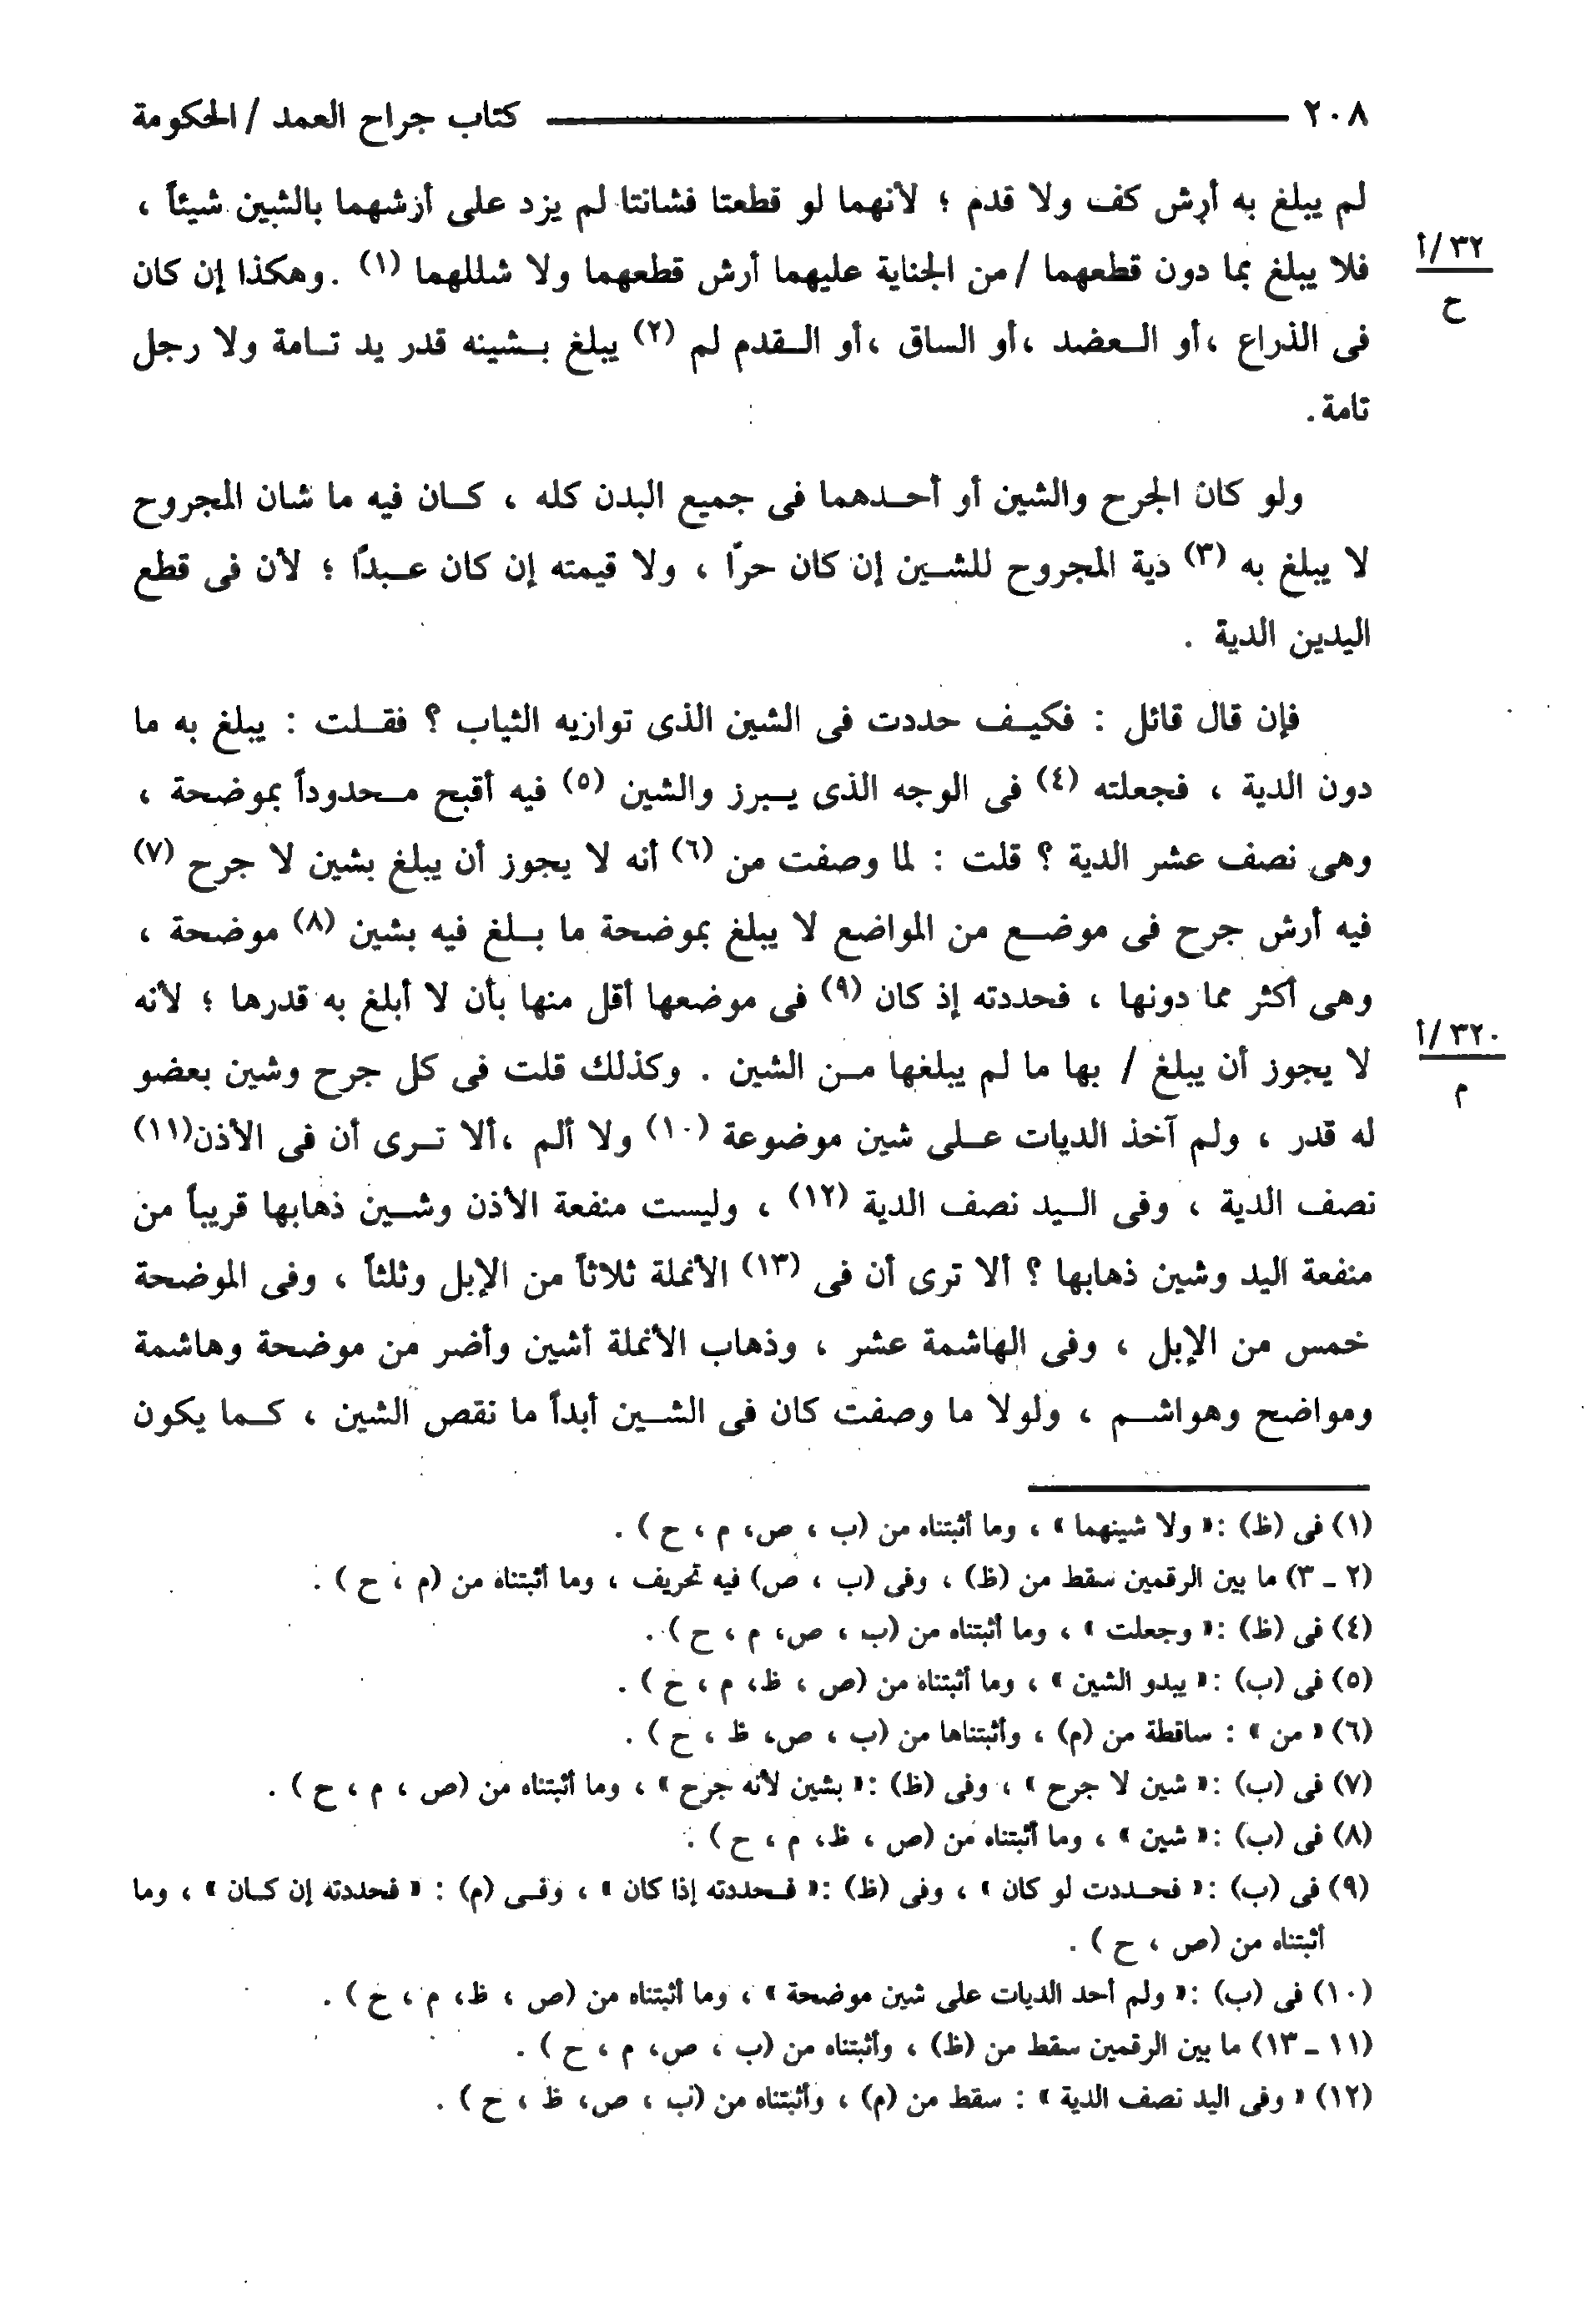 ٢٠٨ كتاب جراح العمد / الحكومة
لم يبلغ به أرش كف ولا قدم ؛ لأنهما لو قطعتا فشانتا لم يزد على أرشهما بالشين شيئاً ،
فلا يبلغ بما دون قطعهما / من الجناية عليهما أرش قطعهما ولا شللهما (١) . وهكذا إن كان
٣٢/أ
ح
فى الذراع ، أو العضد ، أو الساق ، أو القدم لم (٢) يبلغ بشينه قدر يد تامة ولا رجل
تامة .
ولو كان الجرح والشين أو أحدهما فى جميع البدن كله ، كان فيه ما شان المجروح
لا يبلغ به (٣) دية المجروح للشين إن كان حرًا ، ولا قيمته إن كان عبدًا ؛ لأن فى قطع
اليدين الدية .
فإن قال قائل : فكيف حددت فى الشين الذى توازيه الثياب ؟ فقلت : يبلغ به ما
دون الدية ، فجعلته (٤) فى الوجه الذى يبرز والشين (٥) فيه أقبح محدوداً بموضحة ،
وهى نصف عشر الدية ؟ قلت : لما وصفت من (٦) أنه لا يجوز أن يبلغ بشين لا جرح (٧)
فيه أرش جرح فى موضع من المواضع لا يبلغ بموضحة ما بلغ فيه بشين (٨) موضحة ،
وهى أكثر مما دونها ، فحددته إذ كان (٩) فى موضعها أقل منها بأن لا أبلغ به قدرها ؛ لأنه
لا يجوز أن يبلغ / بها ما لم يبلغها من الشين . وكذلك قلت فى كل جرح وشين بعضو
٣٢٠/أ
م
له قدر ، ولم آخذ الديات على شين موضوعة (١٠) ولا ألم ، ألا ترى أن فى الأذن(١١)
نصف الدية ، وفى اليد نصف الدية (١٢) ، وليست منفعة الأذن وشين ذهابها قريباً من
منفعة اليد وشين ذهابها ؟ ألا ترى أن فى (١٣) الأنملة ثلاثاً من الإبل وثلثاً ، وفى الموضحة
خمس من الإبل ، وفى الهاشمة عشر ، وذهاب الأنملة أشين وأضر من موضحة وهاشمة
ومواضح وهواشم ، ولولا ما وصفت كان فى الشين أبداً ما نقص الشين ، كما يكون
(١) فى (ظ) : « ولا شينهما » ، وما أثبتناه من (ب ، ص، م ، ح ) .
(٢ ـ ٣) ما بين الرقمين سقط من (ظ) ، وفى (ب ، ص) فيه تحريف ، وما أثبتناه من (م ، ح ) .
(٤) فى (ظ) : « وجعلت » ، وما أثبتناه من (ب ، ص، م ، ح ) .
(٥) فى (ب) : « يبدو الشين » ، وما أثبتناه من (ص ، ظ، م ، ح ) .
(٦) « من » : ساقطة من (م) ، وأثبتناها من (ب ، ص، ظ ، ح ) .
(٧) فى (ب) : « شين لا جرح » ، وفى (ظ) : « بشين لأنه جرح » ، وما أثبتناه من (ص ، م ، ح ) .
(٨) فى (ب) : « شين » ، وما أثبتناه من (ص ، ظ، م ، ح ) .
(٩) فى (ب) : « فحددت لو كان » ، وفى (ظ) : « فحددته إذا كان » ، وفى (م) : « فحددته إن كان » ، وما
أثبتناه من (ص ، ح ) .
(١٠) فى (ب) : « ولم أحد الديات على شين موضحة » ، وما أثبتناه من (ص ، ظ، م ، ح ) .
(١١ ـ ١٣) ما بين الرقمين سقط من (ظ) ، وأثبتناه من (ب ، ص، م ، ح ) .
(١٢) « وفى اليد نصف الدية » : سقط من (م) ، وأثبتناه من (ب ، ص، ظ ، ح ) .